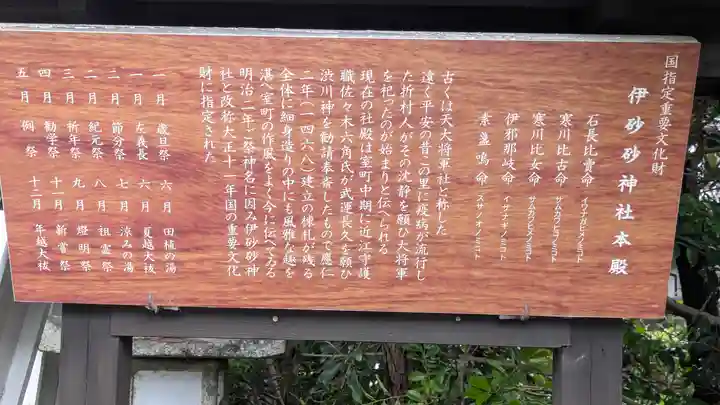 国指定重要文化財
伊砂砂神社本殿
石長比賣命 イワナガヒメノミコト
寒川比古命 サムカワヒコノミコト
寒川比女命 サムカワヒメノミコト
伊邪那岐命 イザナギノミコト
素盞嗚命 スサノオノミコト
古くは天大将軍社と称した
遠く平安の昔この里に疫病が流行し
た折村人がその沈静を願ひ大将軍
を祀ったのが始まりと伝へられる
現在の社殿は室町中期に近江守護
職佐々木六角氏が武運長久を願ひ
渋川神を勧請奉斎したもので應仁
二年(一四六八)建立の棟札が残る
全体に細身造りの中にも風雅な趣を
湛へ室町の作風をよく今に伝へてゐる
明治二年ご祭神名に因み伊砂砂神
社と改称大正十一年国の重要文化
財に指定された
一月 歳旦祭
一月 左義長
二月 節分祭
二月 紀元祭
三月 祈年祭
四月 勧学祭
五月 例祭
六月 田植の湯
六月 夏越大祓
七月 涼みの湯
八月 祖霊祭
九月 燈明祭
十一月 新嘗祭
十二月 年越大祓